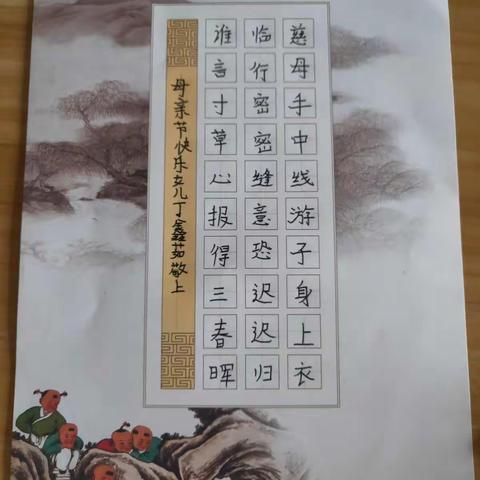 慈母手中线游子身上衣
临行密密缝意恐迟迟归
谁言寸草心报得三春晖
母亲节快乐女儿丁鑫茹敬上